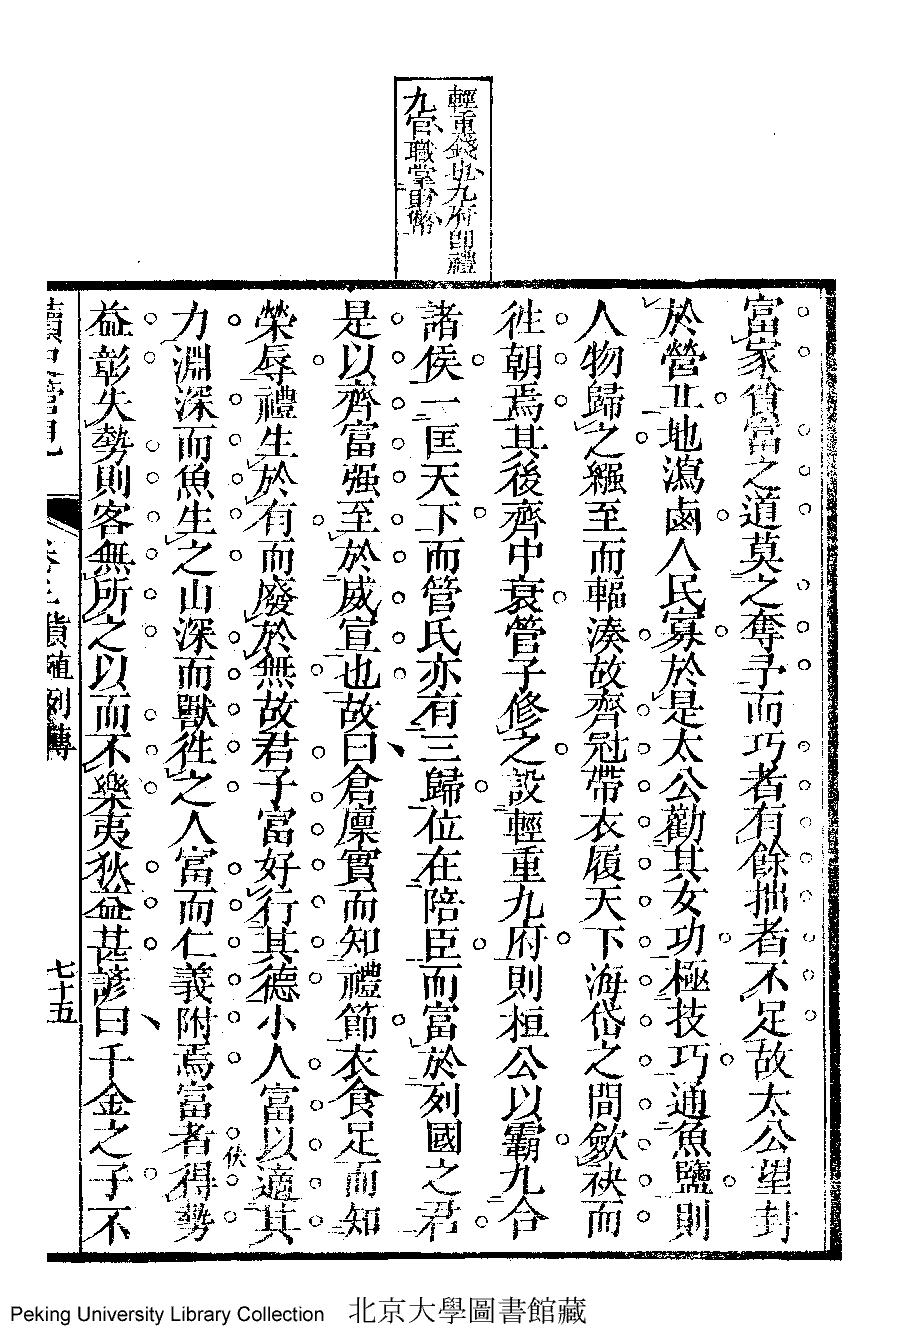 輕重錢也九府即禮
九官職掌財幣
富家貧富之道莫之奪予而巧者有餘拙者不足故太公望封
於營丘地瀉鹵人民寡於是太公勸其女功極技巧通魚鹽則
人物歸之繦至而輻湊故齊冠帶衣履天下海岱之間斂袂而
徃朝焉其後齊中衰管子修之設輕重九府則桓公以霸九合
諸侯一匡天下而管氏亦有三歸位在陪臣而富於列國之君
是以齊富强至於威宣也故曰倉廩實而知禮節衣食足而知
榮辱禮生於有而廢於無故君子富好行其德小人富以適其
力淵深而魚生之山深而獸徃之人富而仁義附焉富者得勢
佚
益彰失勢則客無所之以而不樂夷狄益甚諺曰千金之子不
讀史管見
卷三貨殖列傳
七十五
Peking University Library Collection 北京大學圖書館藏